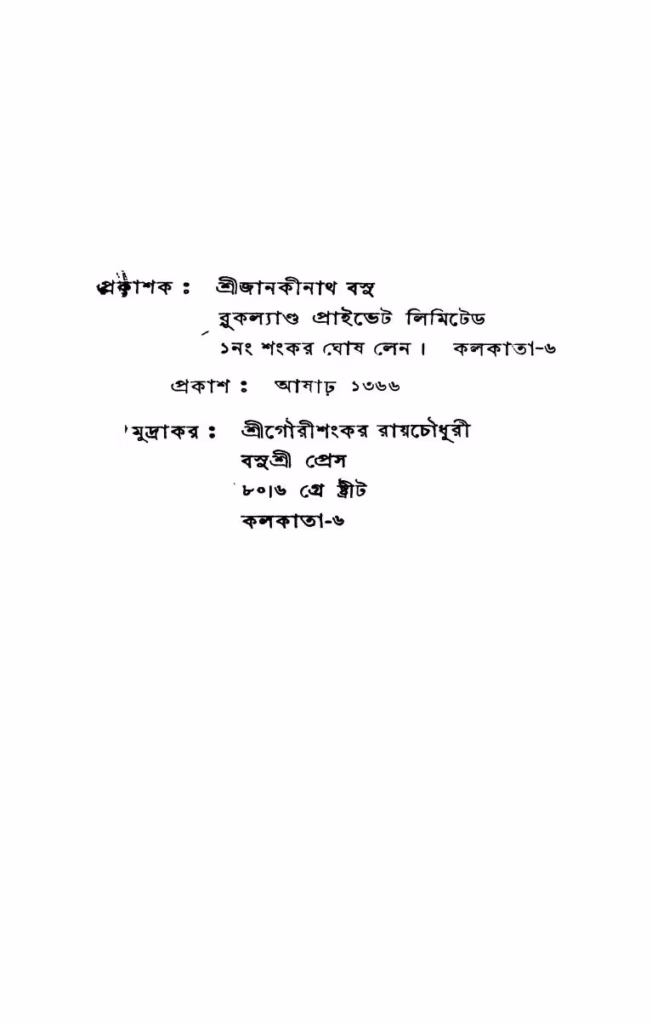 প্রকাশক : শ্রীজানকীনাথ বসু
বুকল্যাণ্ড প্রাইভেট লিমিটেড
১নং শংকর ঘোষ লেন। কলকাতা-৬
প্রকাশ : আষাঢ় ১৩৬৬
মুদ্রাকর : শ্রীগৌরীশংকর রায়চৌধুরী
বসুশ্রী প্রেস
৮০।৬ গ্রে ষ্ট্রীট
কলকাতা-৬